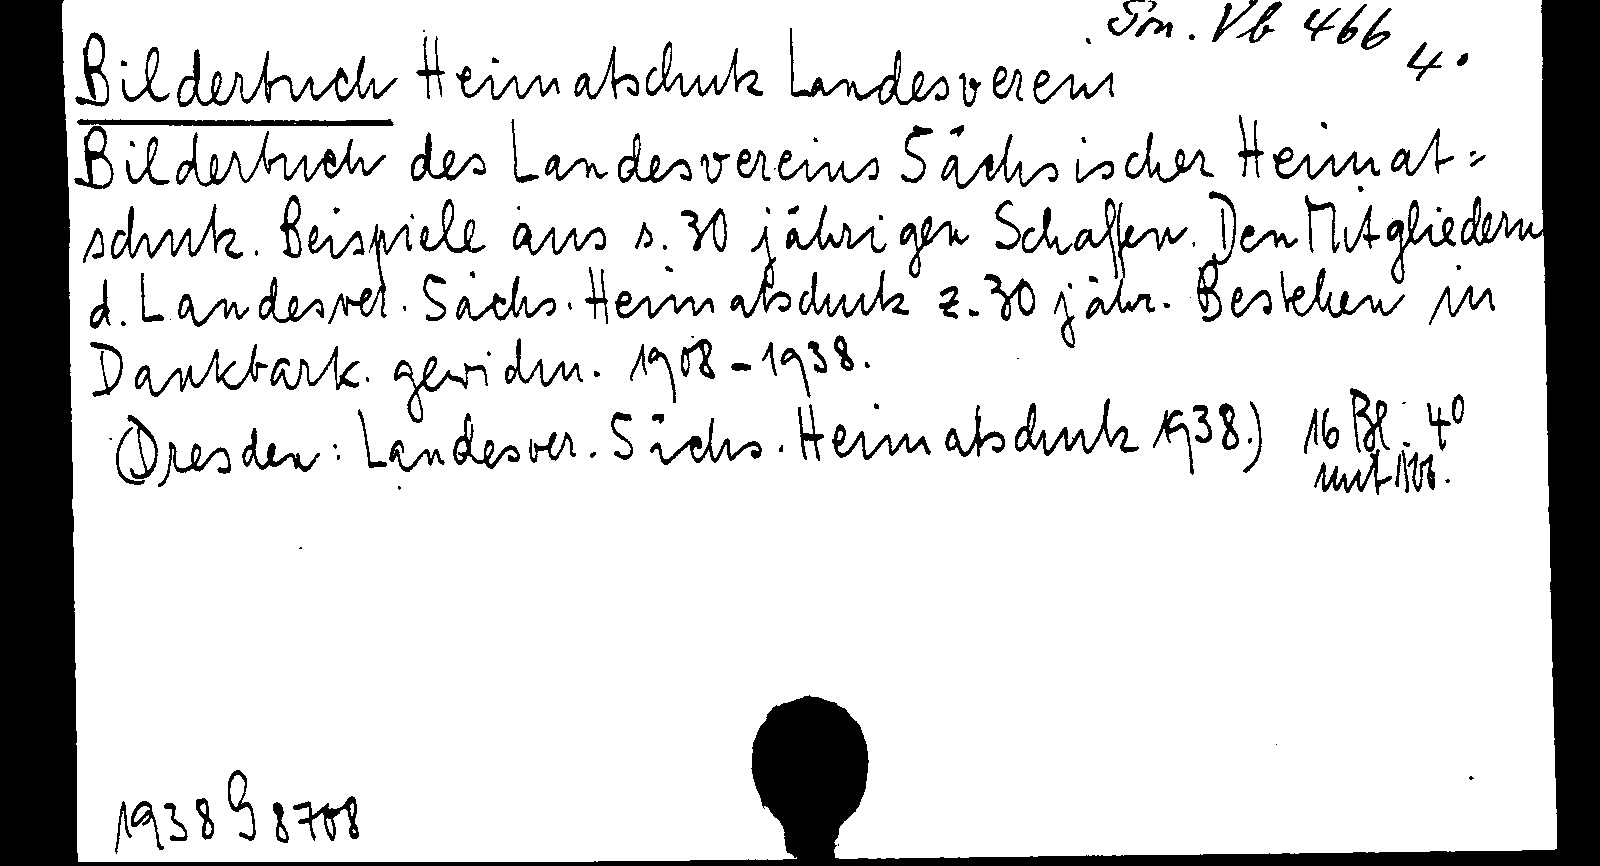 Sm. Vb 466
4°
Bilderbuch Heimatschutz Landesverein
Bilderbuch des Landesvereins Sächsischer Heimat=
schutz. Beispiele aus s. 30 jährigen Schaffen. Den Mitgliedern
d. Landesver. Sächs. Heimatschutz z. 30 jähr. Bestehen in
Dankbark. gewidm. 1908-1938.
(Dresden: Landesver. Sächs. Heimatschutz 1938.) 16 Bl. 4°
mit
1938 G 8708